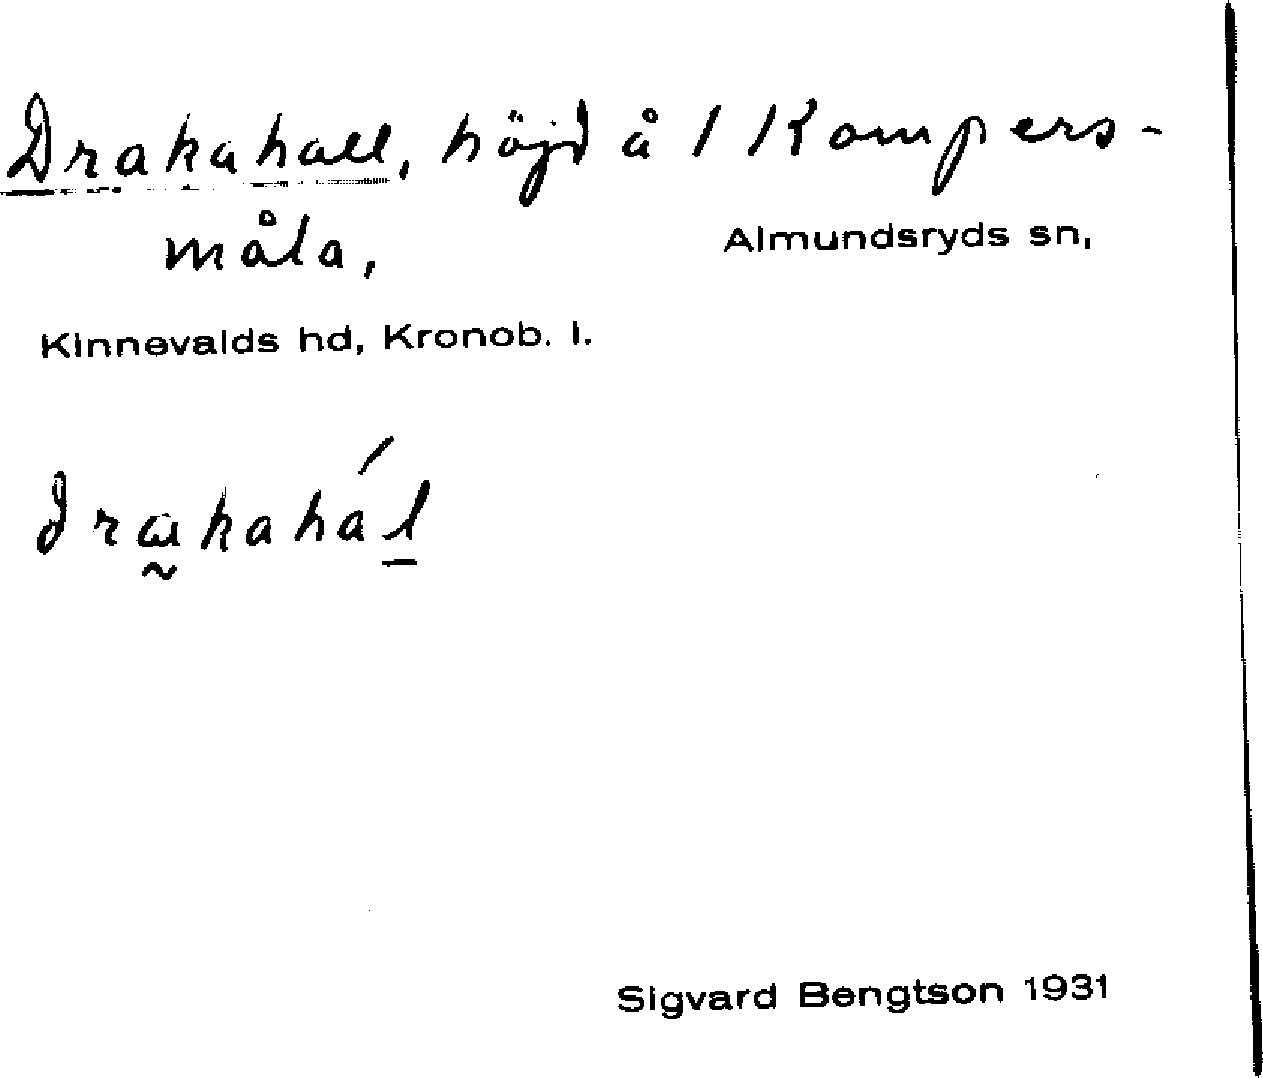 Drakahall, höjd å 1 Kompers-
måla,
Almundsryds sn,
Kinnevalds hd, Kronob. l.
drɑ̰kahál̲
Sigvard Bengtson 1931